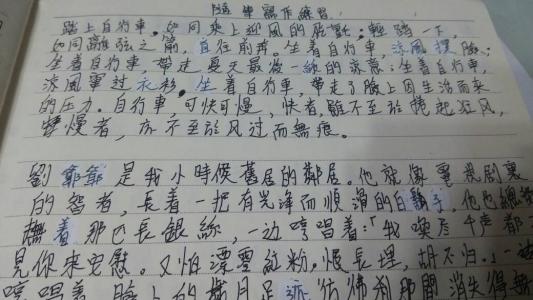 隨筆寫作練習
踏上自行車，如同乘上迎風的
輕踏一下，
如同離弦之箭，直往前奔。坐着自行車，涼風撲臉；
坐着自行車，帶走夏天最後一絲的涼意；坐着自行車，
涼風穿过衣衫。坐着自行車，帶走了臉上因生活而来
的压力。自行車可快可慢，快者，雖不至於捲起狂风，
慢者，亦不至於风过而無痕。
劉爺爺是我小時候舊居的鄰居。他就像電視剧裏
的智者，長着一把有光泽而順滑的白鬍子，他也總愛
撫着那巴長銀絲，一边哼唱着：「我喚左千声都
見你來安慰。又怕漂零紅粉，恨長埋，胡不归。」一边
哼唱着，臉上的歲月足迹彷彿刹那間消失得無